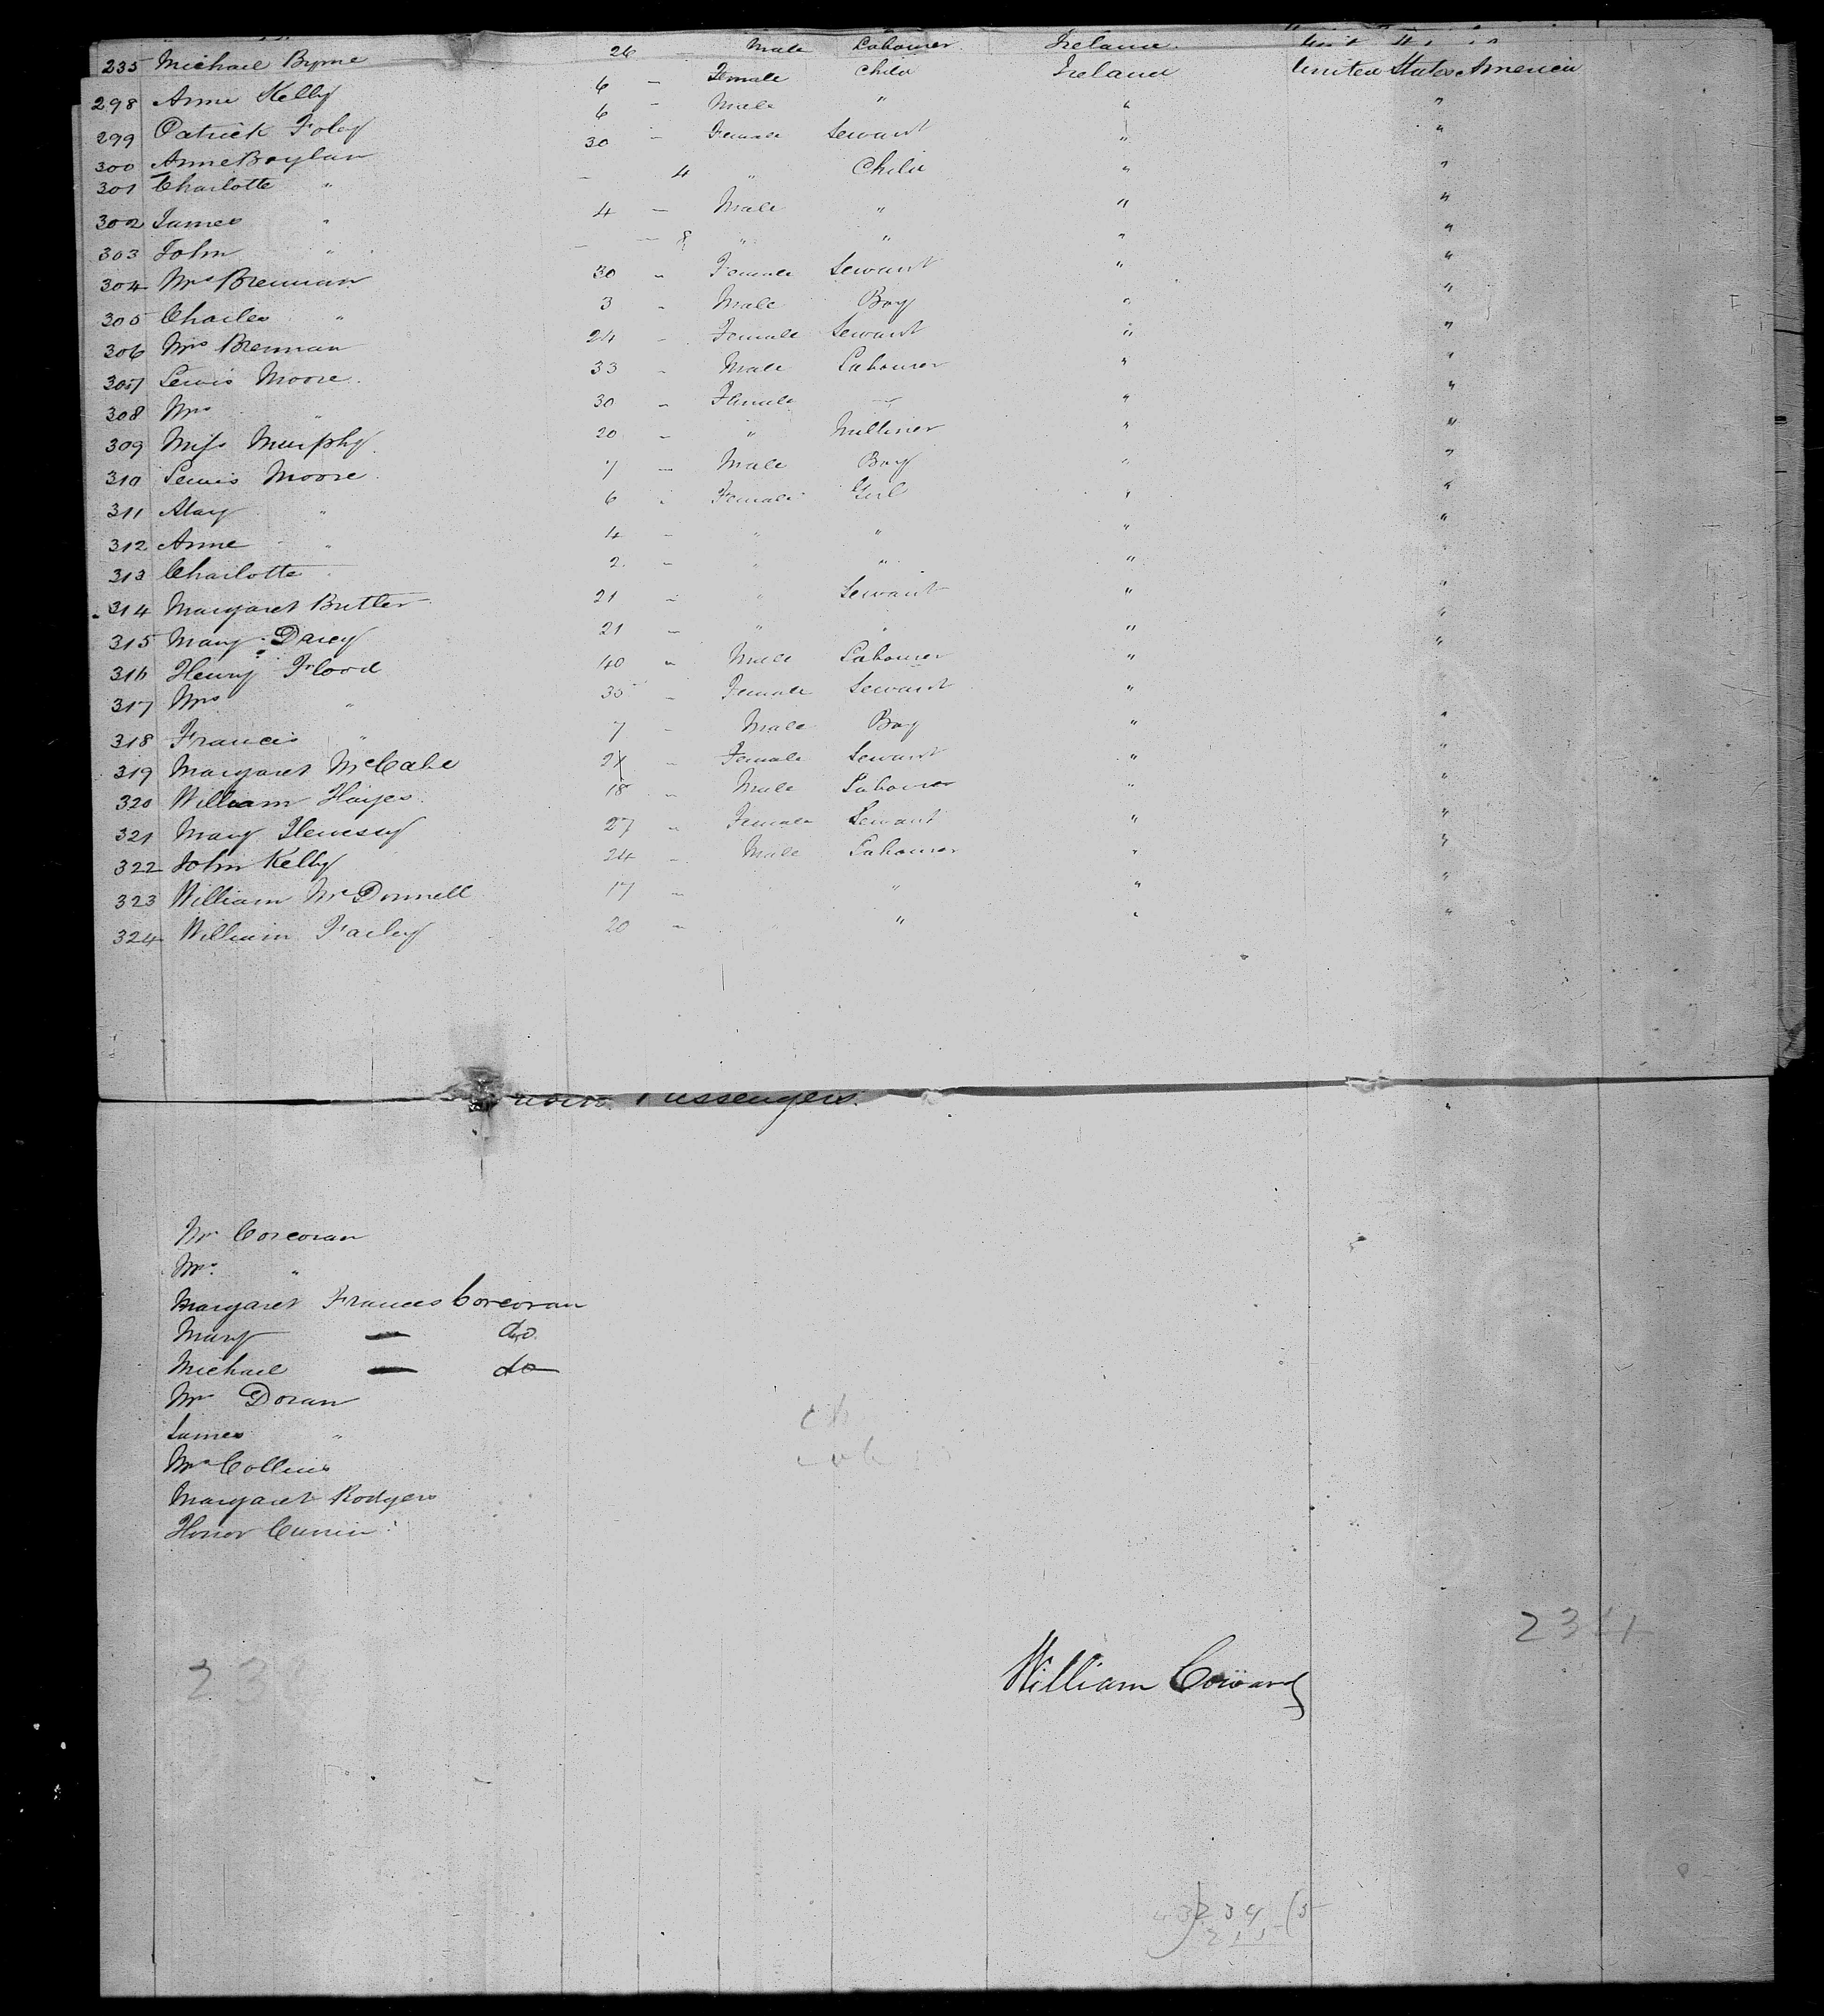 235 Michael Byrne 26 — Male Labourer Ireland
298 Anne Kelly 6 — Female Child Ireland United States America
299 Patrick Foley 6 — Male " " "
300 Anne Boylan 30 — Female Servant " "
301 Charlotte " — 4 " Child " "
302 James " 4 — Male " " "
303 John " — — 8 " " " "
304 Mrs Brennan 30 " Female Servant " "
305 Charles " 3 - Male Boy " "
306 Mrs Brennan 24 - Female Servant " "
307 Lewis Moore 33 - Male Labourer " "
308 Mrs " 30 - Female — " "
309 Miss Murphy 20 - " Milliner " "
310 Lewis Moore 7 — Male Boy " "
311 Mary " 6 - Female Girl " "
312 Anne " 4 - " " " "
313 Charlotte " 2 - " " " "
314 Margaret Butler 21 - " Servant " "
315 Mary Darcy 21 - " " " "
316 Henry Flood 40 " Male Labourer " "
317 Mrs " 35 - Female Servant " "
318 Francis " 7 - Male Boy " "
319 Margaret McCabe - Female Servant " "
320 William Hayes 18 - Male Labourer " "
321 Mary Henessy 27 " Female Servant " "
322 John Kelly 24 - Male Labourer " "
323 William McDonnell 17 - " " "
324 William Farley 20 - " " "
Passengers.
Mr Corcoran
Mrs. "
Margaret Frances Corcoran
Mary — do.
Michael — do
Mrs Doran
James "
Mrs Collins
Margaret Rodgers
Honor
234
William Coward
234 (5